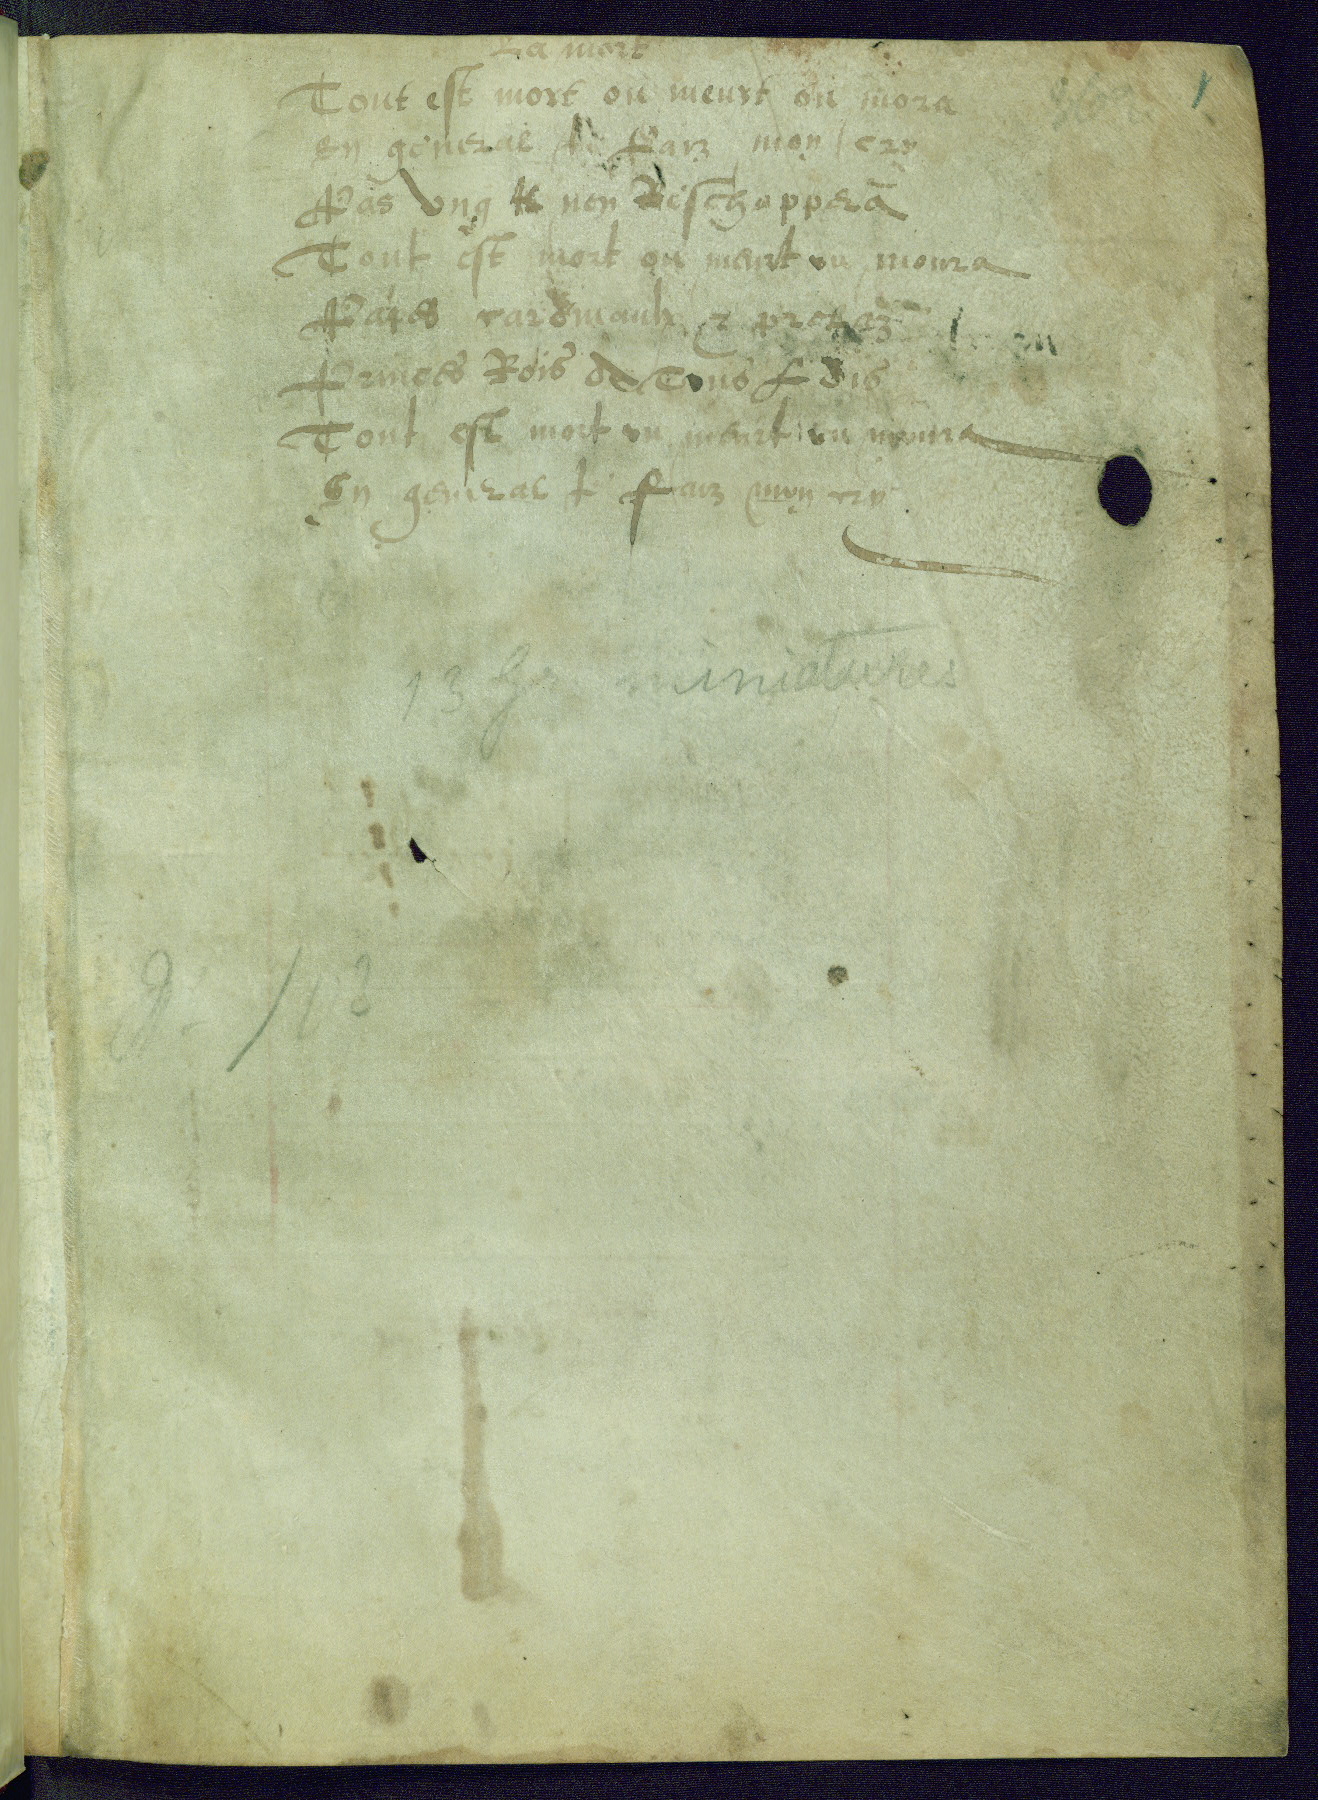 La mort
1
Tout est mort ou meurt ou mora
En general Je Faiz mon cry
Pas ung nen Reschappera
Tout est mort ou meurt ou moura
Papes cardinaulx
Princes Rois de Tous
Tout est mort ou meurt ou moura
En general Faiz mon cry
13 gr miniatures